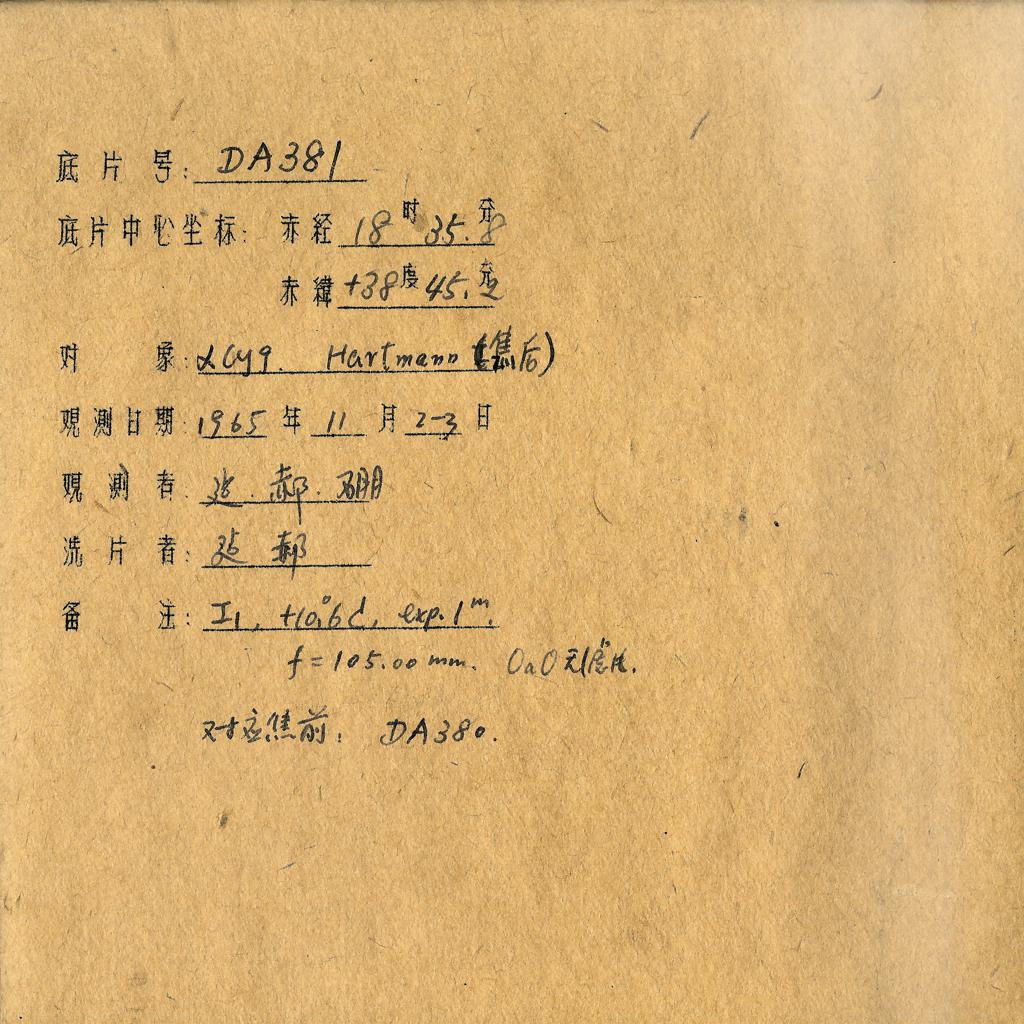 底片号: DA381
底片中心坐标: 赤経 18时 35.8分
赤緯 +38度 45.2分
对象: α Cyg. Hartmann (焦后)
观测日期: 1965年 11月 2-3日
观测者: 郝.
洗片者: 郝
备注: I1, +10.°6 C, exp. 1m.
f=105.00 mm. OaO 无滤片.
对应焦前: DA380.